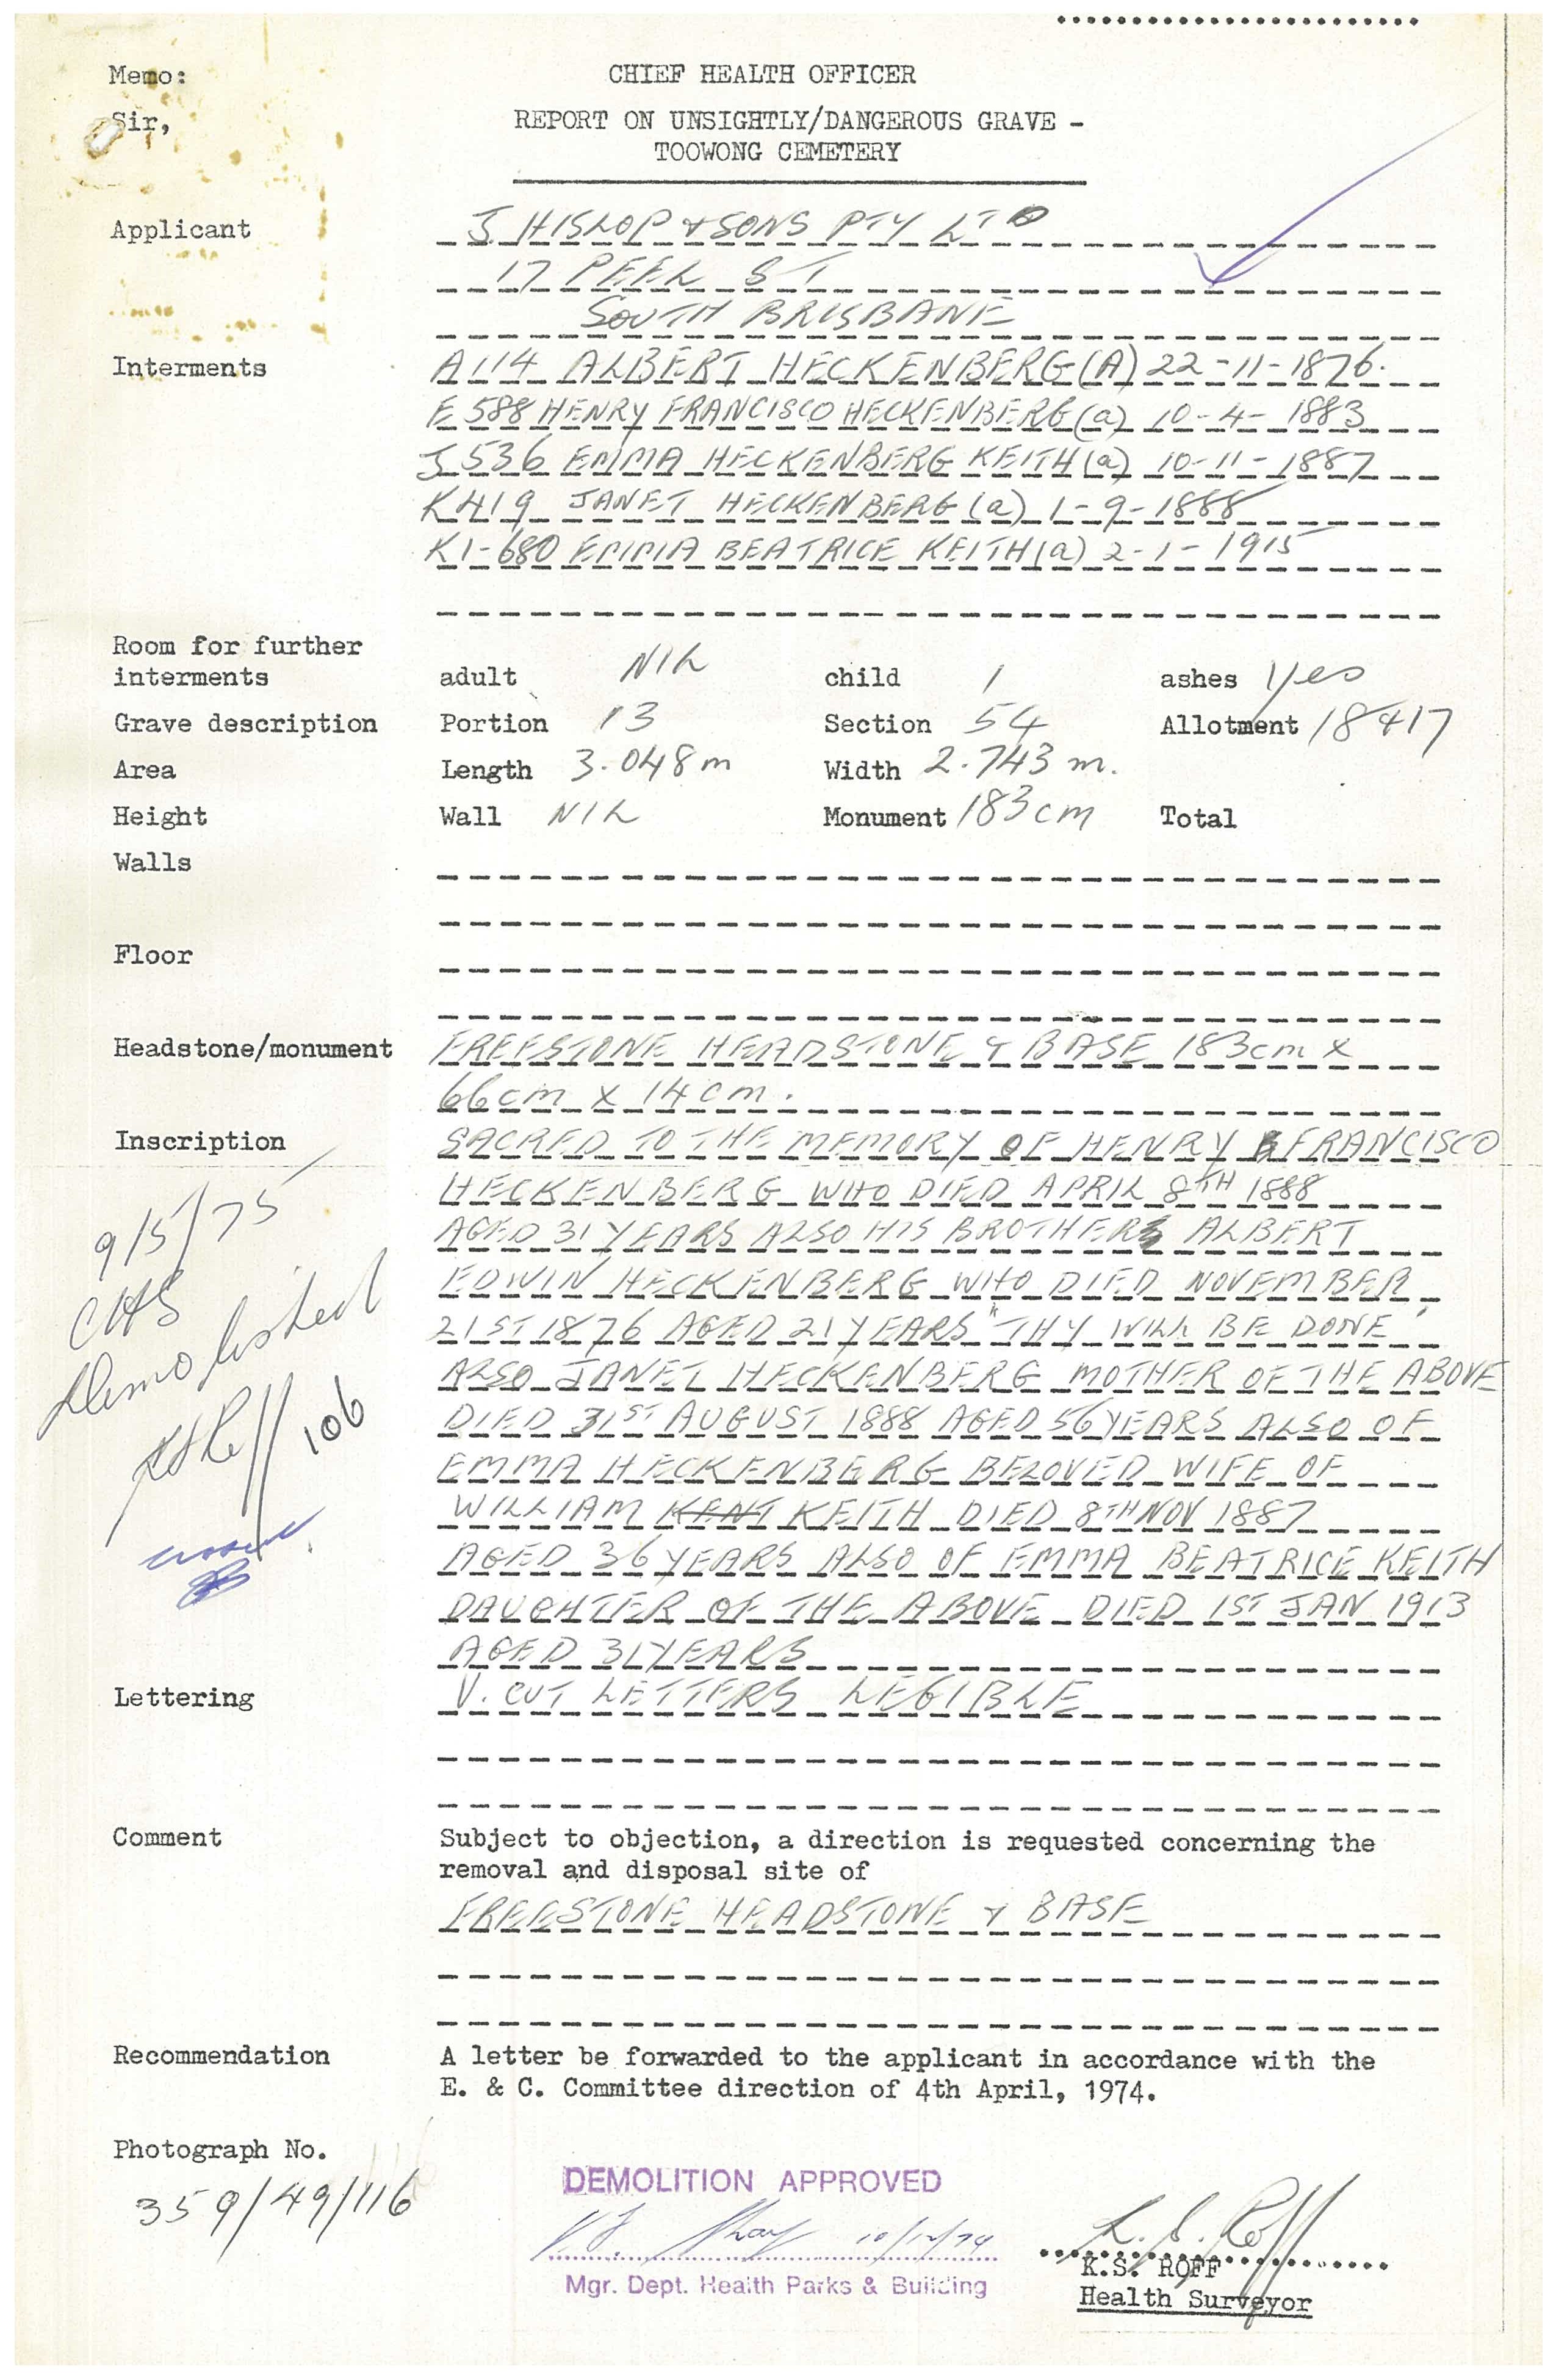 Memo:
CHIEF HEALTH OFFICER
Sir,
REPORT ON UNSIGHTLY/DANGEROUS GRAVE -
TOOWONG CEMETERY
Applicant J. HISLOP & SONS PTY LTD
17 PEEL ST
SOUTH BRISBANE
Interments A114 ALBERT HECKENBERG (A) 22-11-1876.
E588 HENRY FRANCISCO HECKENBERG (a) 10-4-1883
J536 EMMA HECKENBERG KEITH (a) 10-11-1887
K419 JANET HECKENBERG (a) 1-9-1888
K1-680 EMMA BEATRICE KEITH (a) 2-1-1915
Room for further
interments adult NIL child 1 ashes Yes
Grave description Portion 13 Section 54 Allotment 18417
Area Length 3.048m Width 2.743 m.
Height Wall NIL Monument 183cm Total
Walls
Floor
Headstone/monument FREESTONE HEADSTONE & BASE 183cm x
66cm x 14cm.
Inscription SACRED TO THE MEMORY OF HENRY FRANCISCO
HECKENBERG WHO DIED APRIL 8TH 1888
AGED 31 YEARS ALSO HIS BROTHER ALBERT
EDWIN HECKENBERG WHO DIED NOVEMBER
21ST 1876 AGED 21 YEARS "THY WILL BE DONE"
ALSO JANET HECKENBERG MOTHER OF THE ABOVE
DIED 31ST AUGUST 1888 AGED 56 YEARS ALSO OF
EMMA HECKENBERG BELOVED WIFE OF
WILLIAM KENT KEITH DIED 8TH NOV 1887
AGED 36 YEARS ALSO OF EMMA BEATRICE KEITH
DAUGHTER OF THE ABOVE DIED 1ST JAN 1913
AGED 31 YEARS
9/5/75
CHS
Demolished
KSRoff
106
Lettering V. CUT LETTERS LEGIBLE
Comment Subject to objection, a direction is requested concerning the
removal and disposal site of
FREESTONE HEADSTONE & BASE
Recommendation A letter be forwarded to the applicant in accordance with the
E. & C. Committee direction of 4th April, 1974.
Photograph No.
359/49/116
DEMOLITION APPROVED
10/12/74
Mgr. Dept. Health Parks & Building
K. S. Roff
K.S. ROFF
Health Surveyor